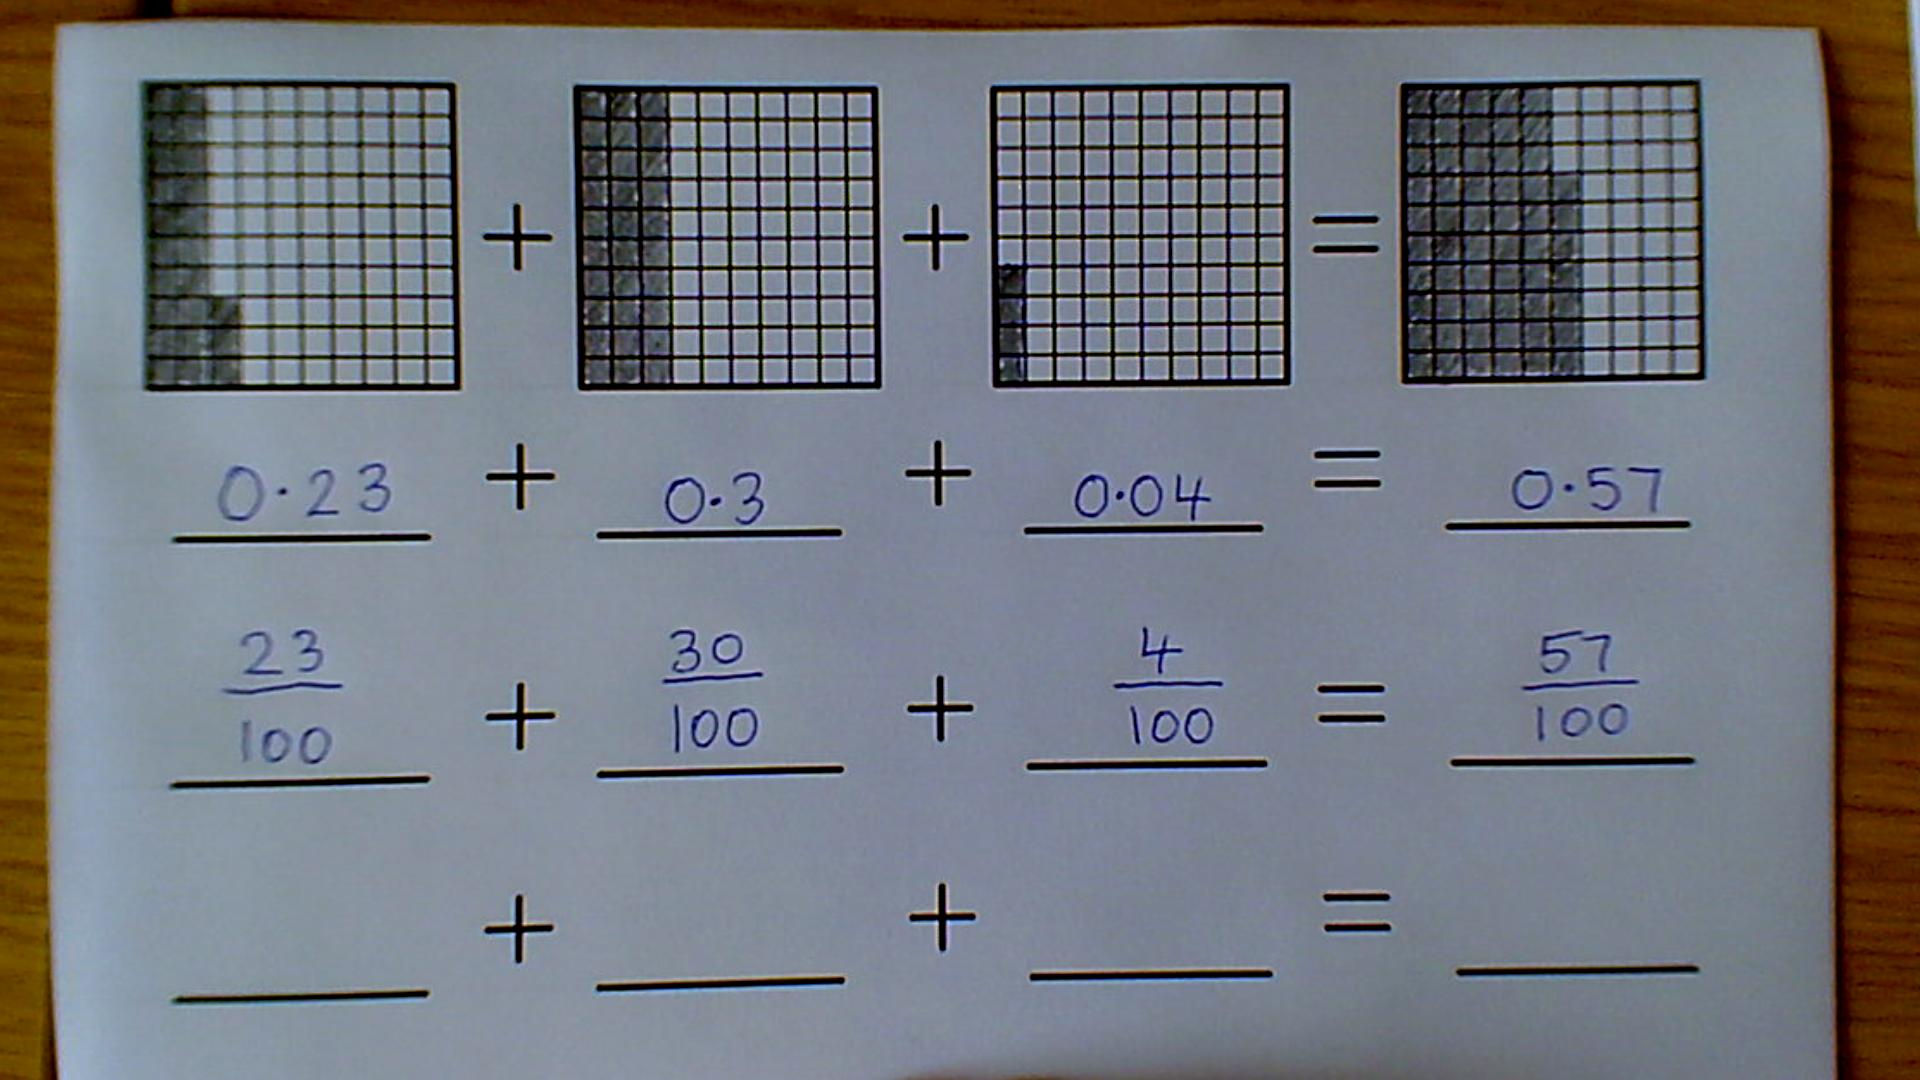 + + =
0.23 + 0.3 + 0.04 = 0.57
23/100 + 30/100 + 4/100 = 57/100
+ + =